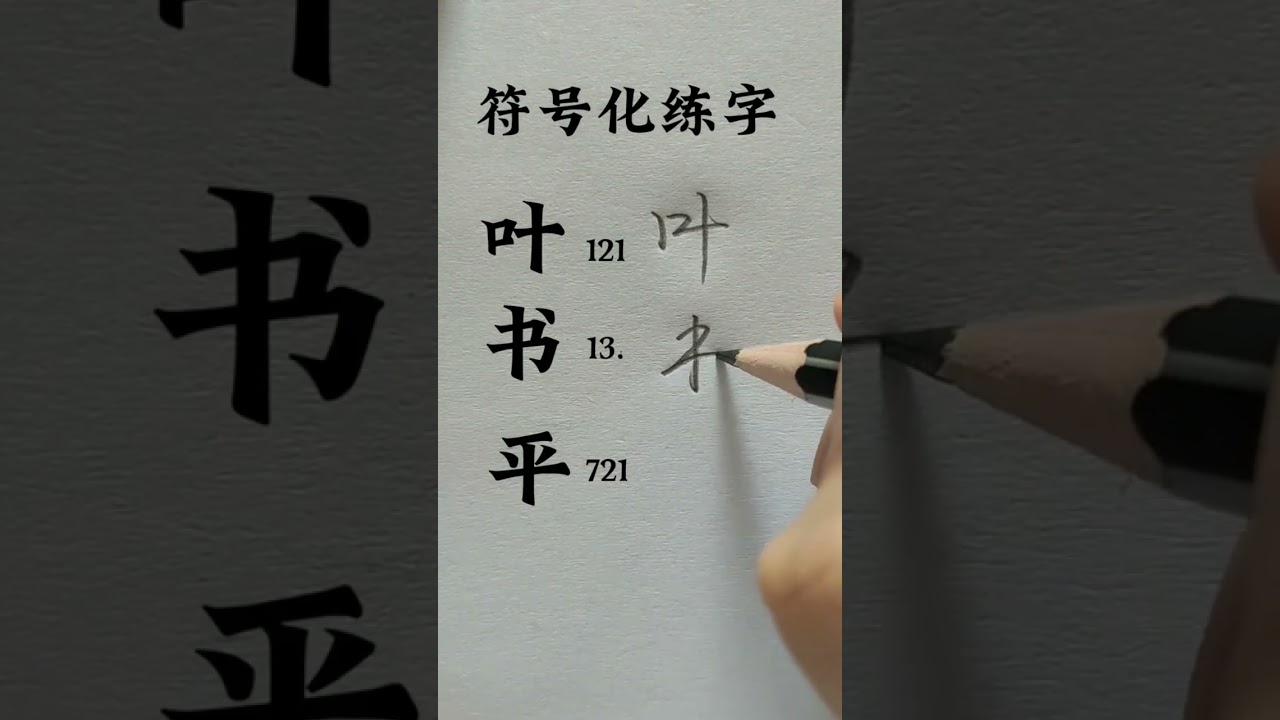 符号化练字
叶 121 叶
书 13. 书
平 721